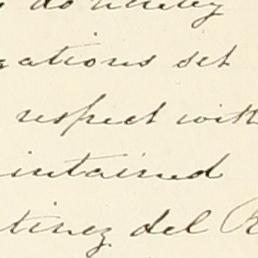 gations set
respect with
intained
tinez del R